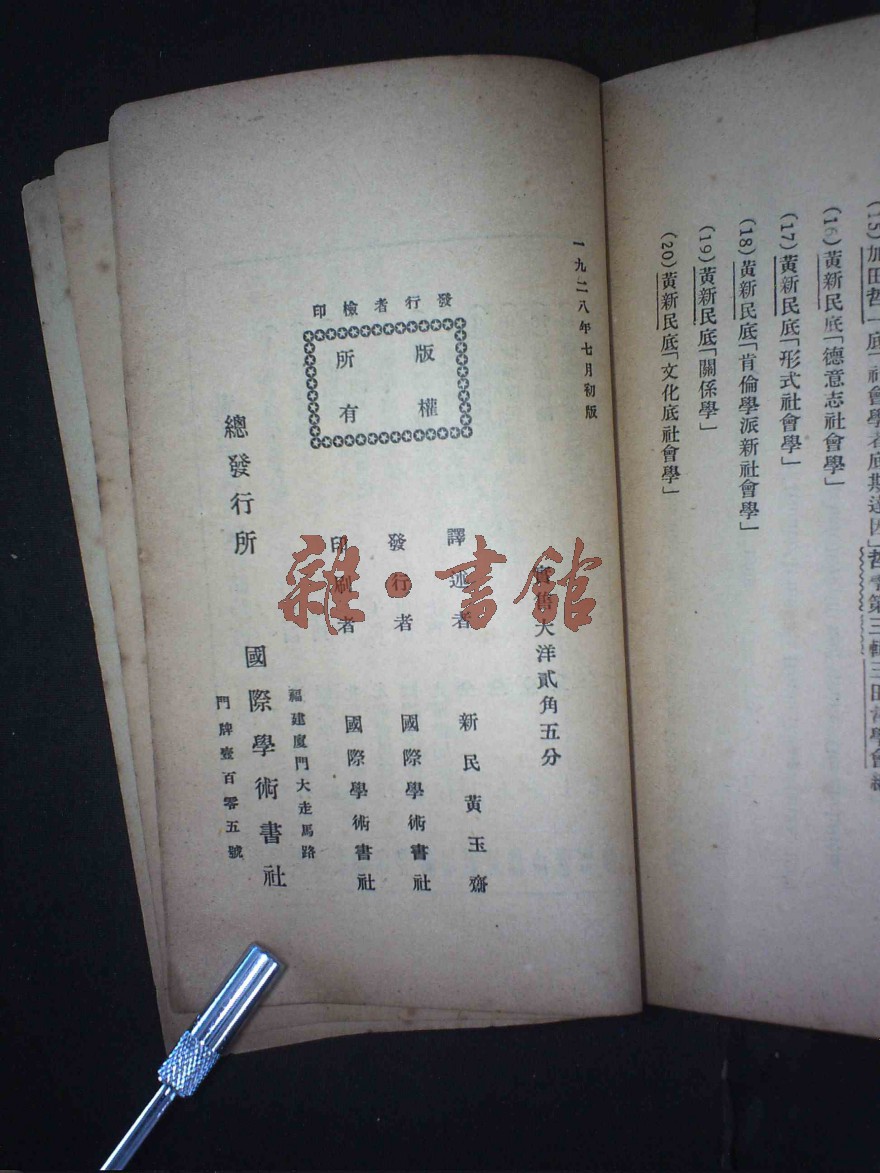 (16)黃新民底「德意志社會學」
(17)黃新民底「形式社會學」
(18)黃新民底「肯倫學派新社會學」
(19)黃新民底「關係學」
(20)黃新民底「文化底社會學」
一九二八年七月初版
實售大洋貳角五分
發行者檢印
版權
所有
譯述者 新民黃玉齋
發行者 國際學術書社
印刷者 國際學術書社
總發行所
福建廈門大走馬路
國際學術書社
門牌壹百零五號
雜·書館